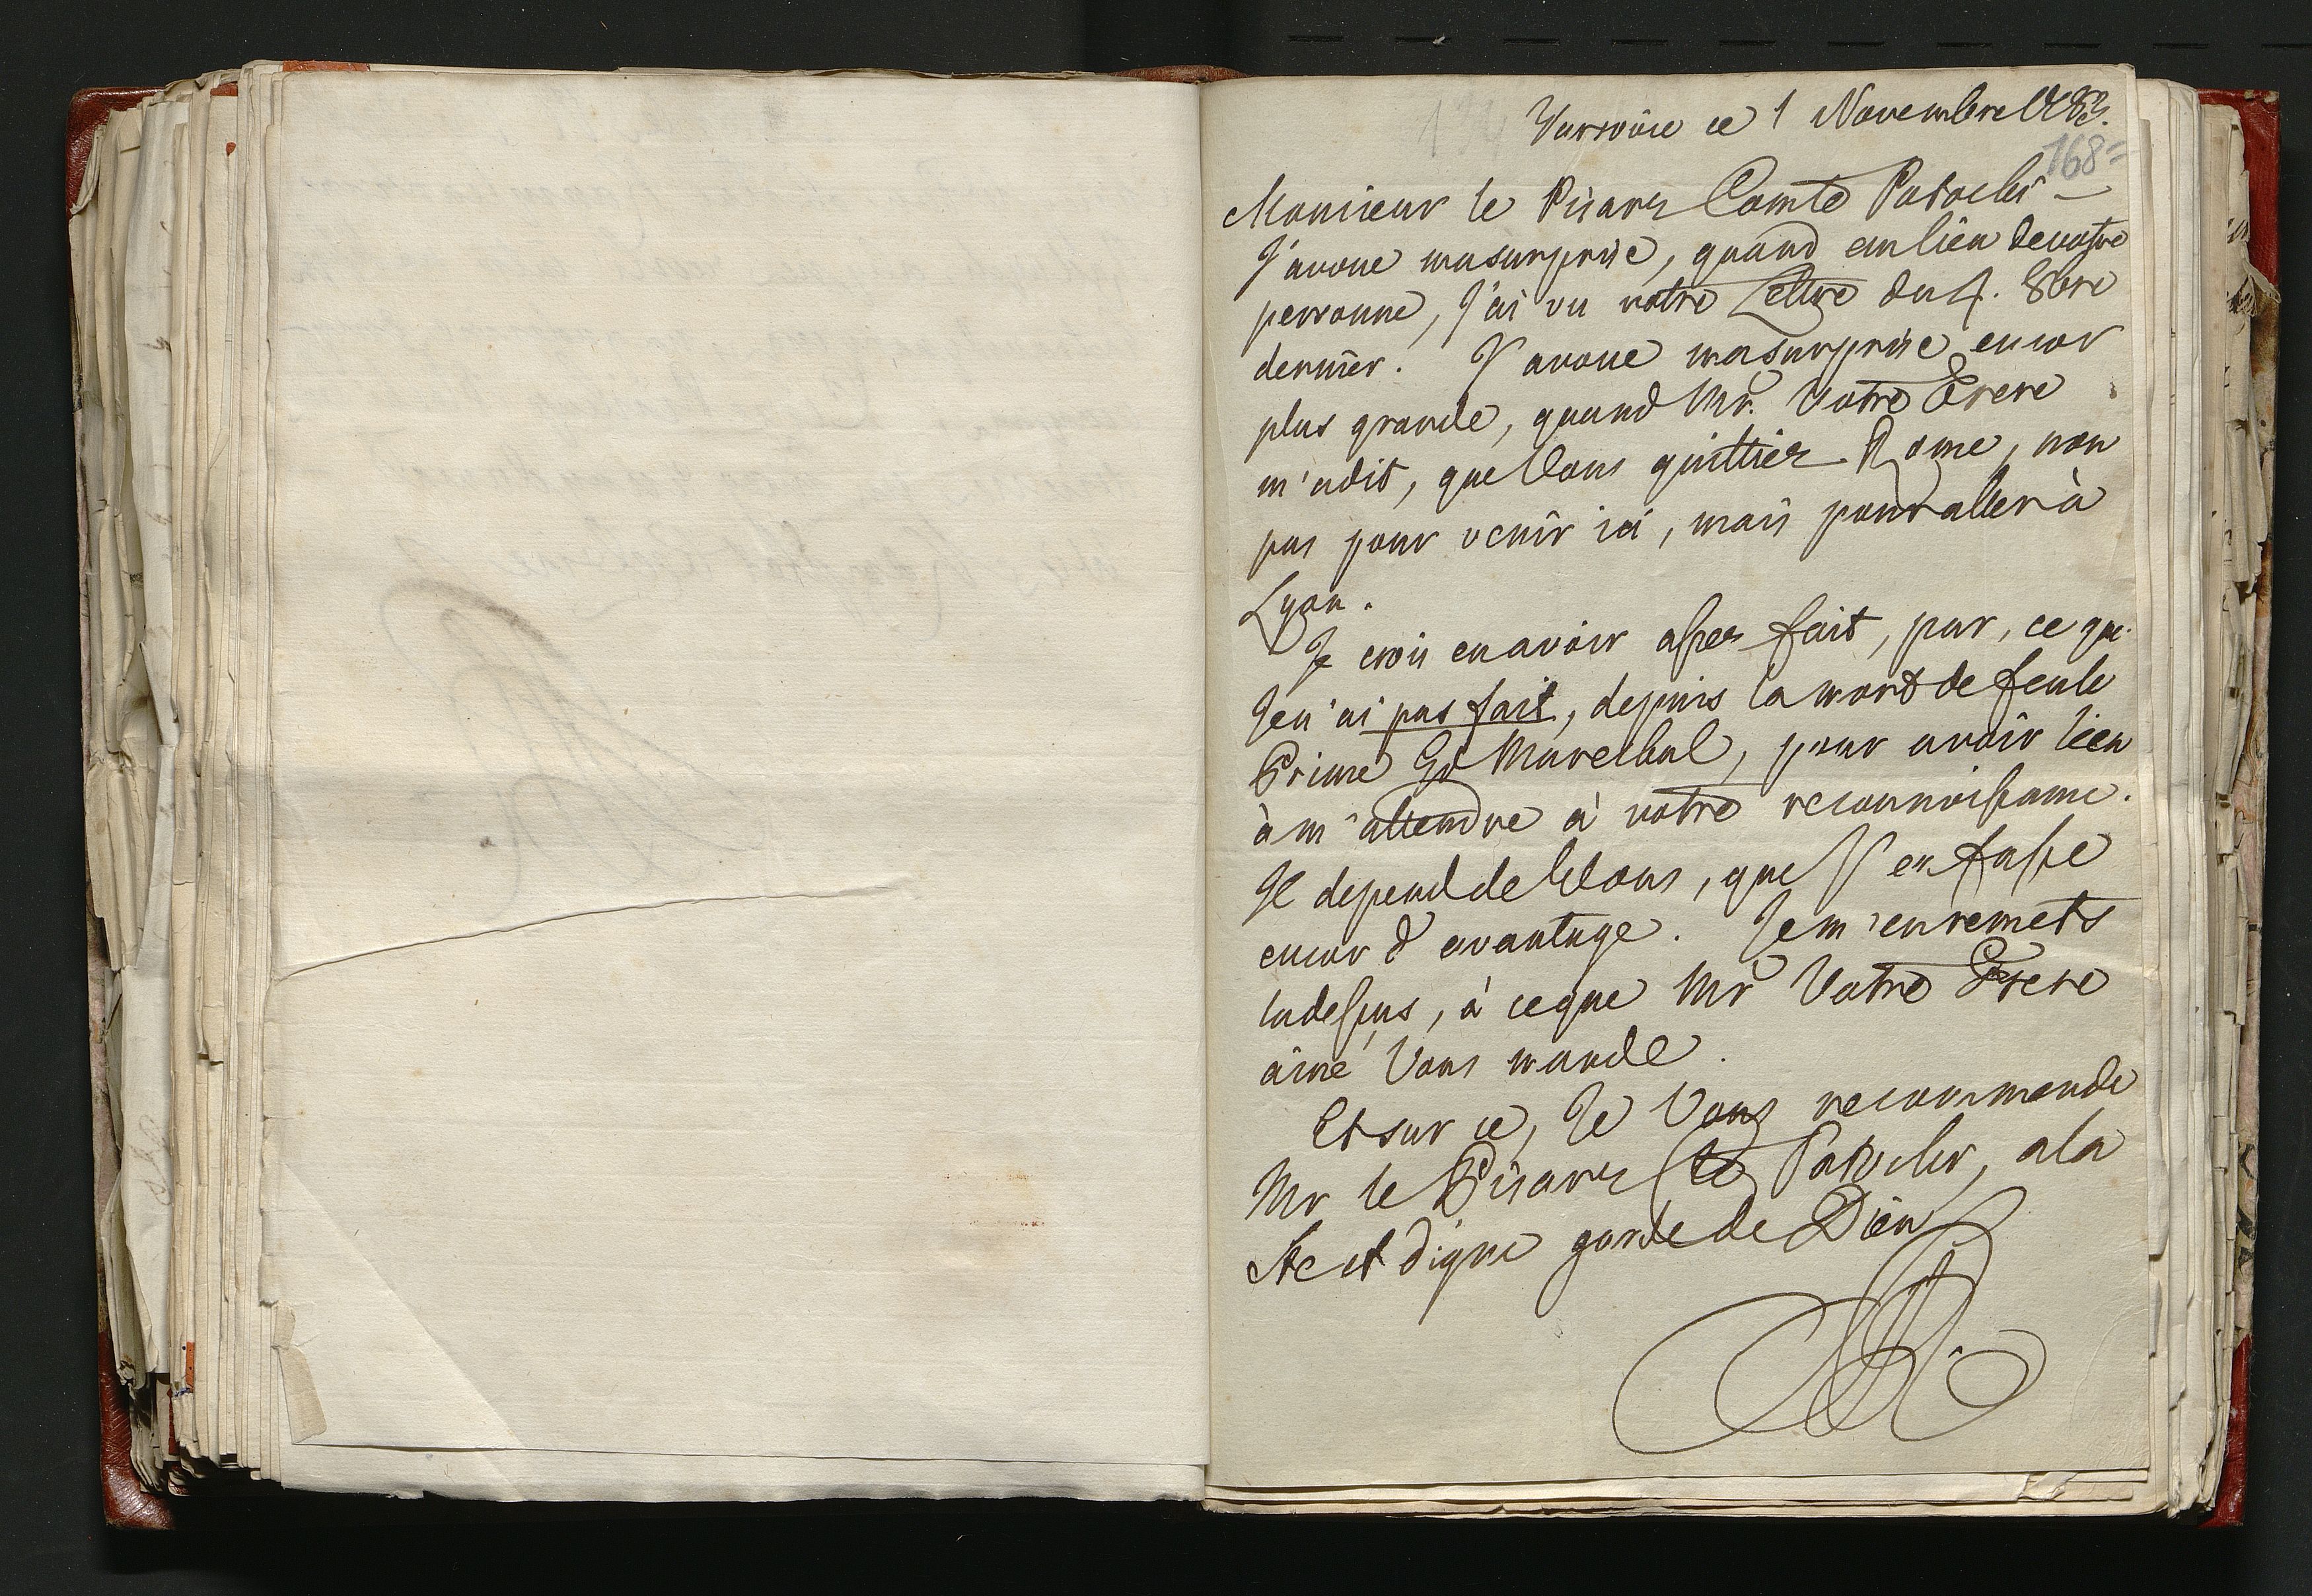 Varsovie ce 1 Novembre 1783.
168
Monsieur le Pisarz Comte Potocki
J'avoue ma surprise, quand au lieu de votre
personne, j'ai vu votre Lettre du 4. 8bre
dernier. J'avoue ma surprise encor
plus grande, quand Mr. Votre Frere
m'a dit, que Vous quittiez Rome, non
pas pour venir ici, mais pour aller à
Lyon.
Je crois en avoir assez fait, par, ce que
Je n'ai pas fait, depuis la mort de feu le
Prince Gd Marechal, pour avoir lieu
à m'attendre à votre reconnoissance.
Il depend de Vous, que J'en fasse
encor d'avantage. Je m'en remets
la dessus, à ce que Mr Votre Frere
ainé Vous mande.
Et sur ce, Je Vous recommende
Mr le Pisarz Cte Potocki, a la
Ste et digne garde de Dieu
SAR